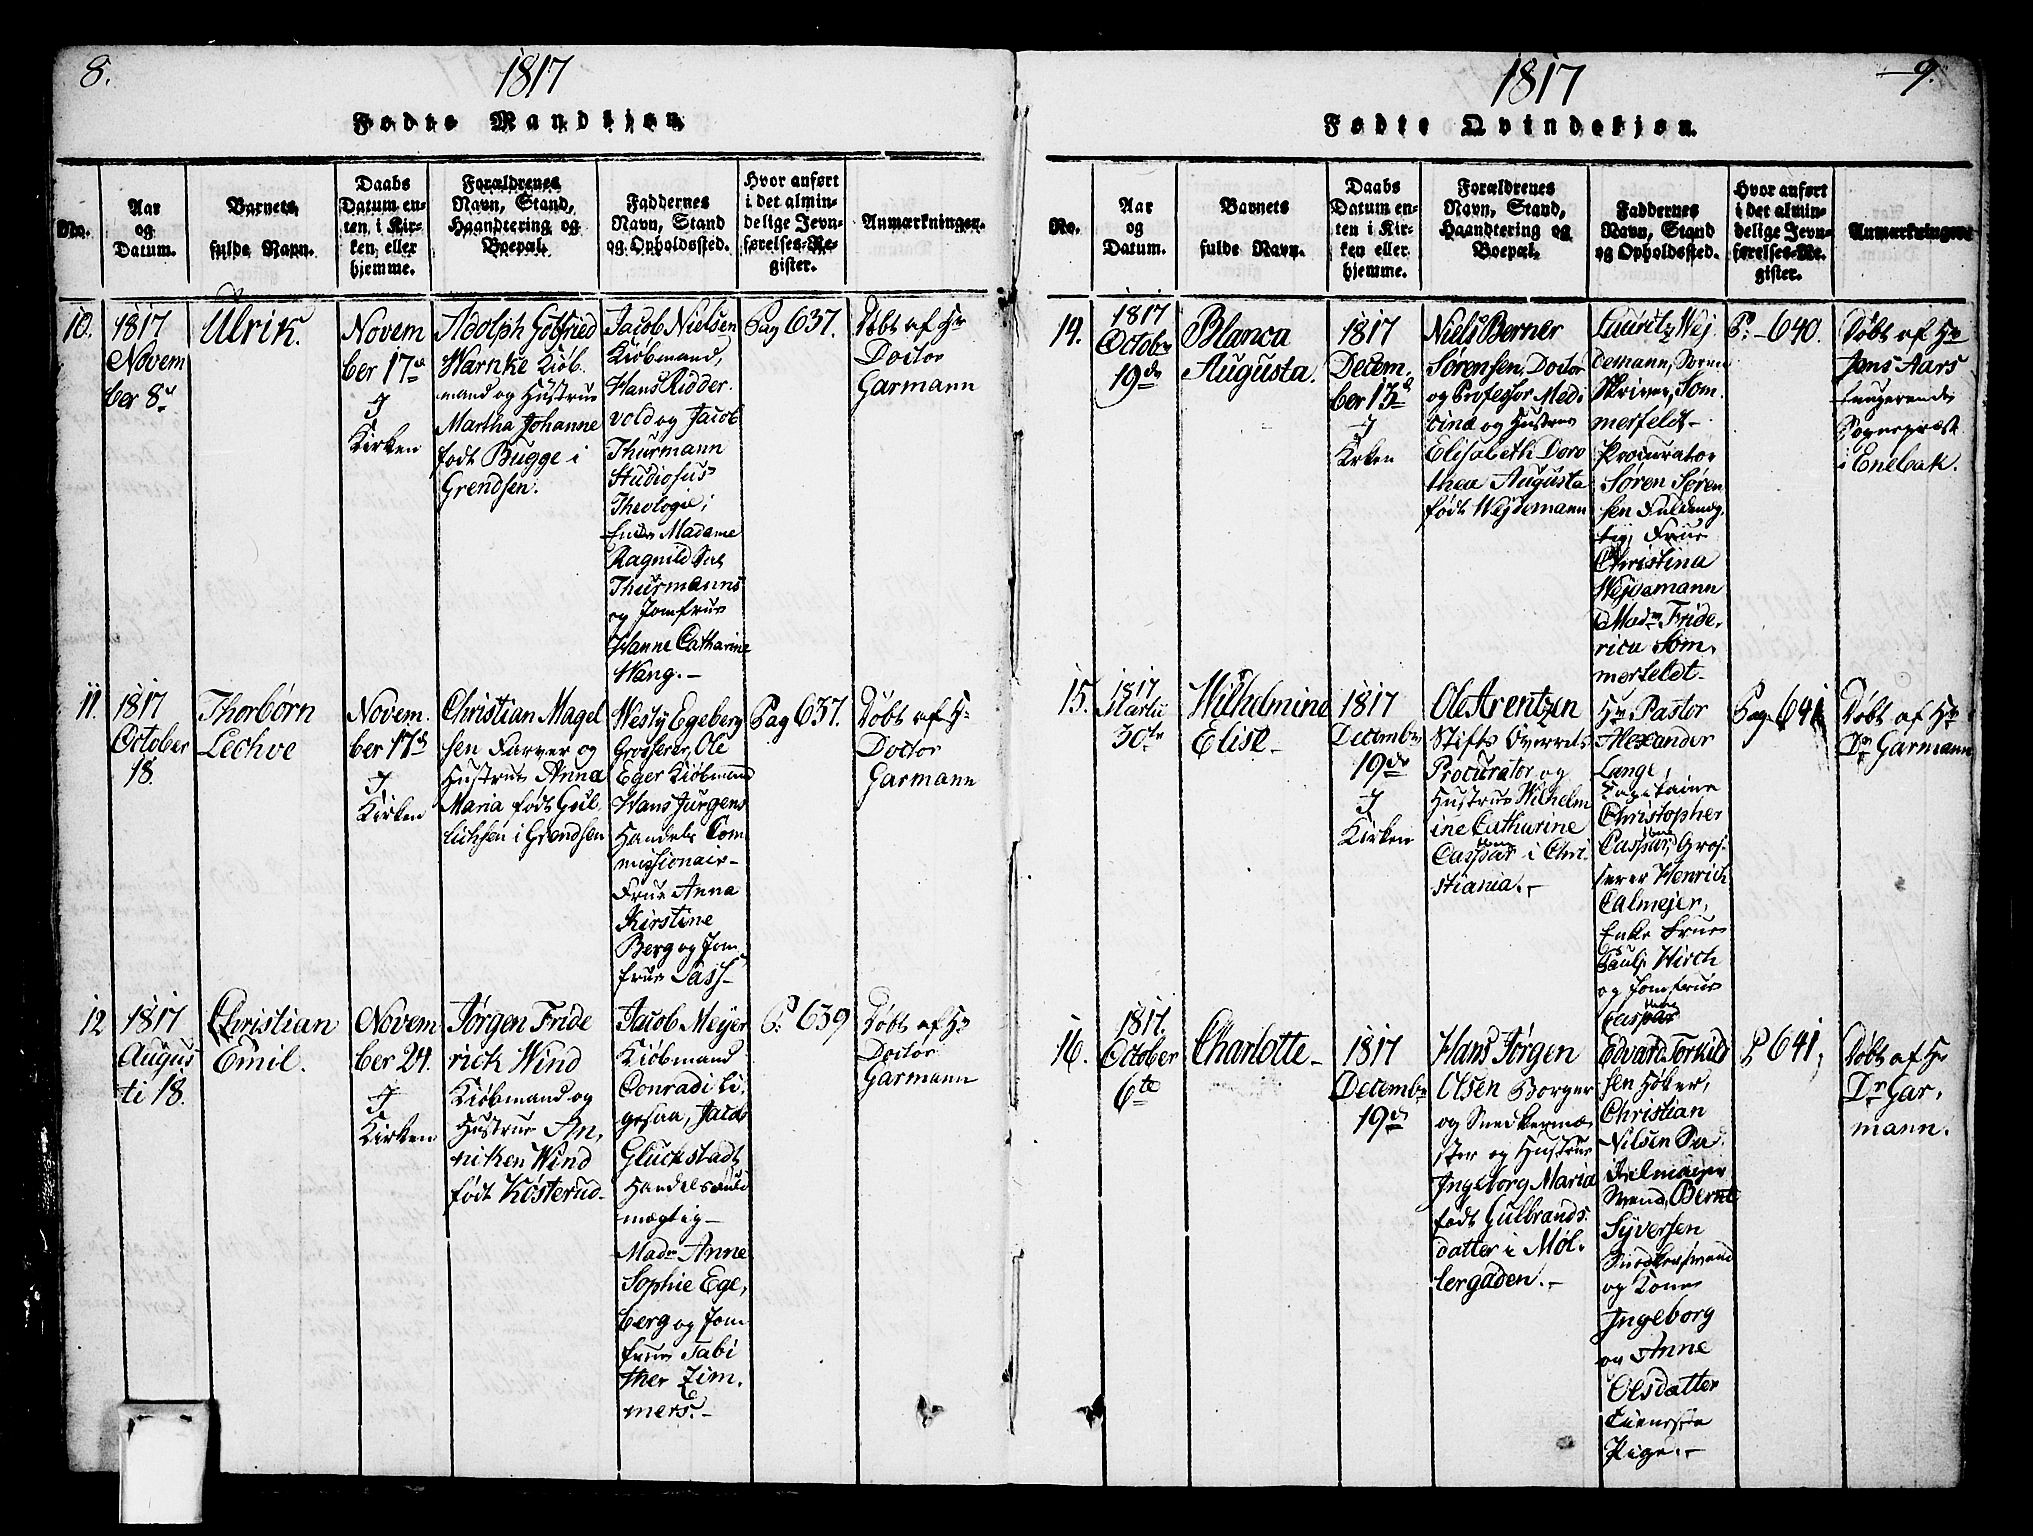 8.
1817
Fødte Mandkjøn
No.
Aar
og
Datum.
Barnets
fulde Navn.
Daabs
Datum en-
ten i Kir-
ken eller
hjemme.
Forældrenes
Navn, Stand,
Haandtering og
Boepæl.
Faddernes
Navn, Stand
og Opholdssted.
Hvor anført
i det almin-
delige Jevn-
førelses-Re-
gister.
Anmærkninger.
10.
1817
Novem
ber 8de
Ulrik.
Novem
ber 17de
I
Kirken
Adolph Gotfried
Warnke Kiøb
mand og Hustrue
Martha Johanne
født Bugge i
Grendsen.
Jacob Nielsen
Kiøbmand,
Hans Ridder
vold og Jacob
Thurmann
Studiosus
Theologie;
Enke Madame
Ragnild Sal
Thurmanns
og Jomfrue
Hanne Catharine
Wang.-
Pag 637.
Døbt af Hr
Doctor
Garmann
11.
1817
October
18.
Thorbørn
Lechve
Novem
ber 17de
I
Kirken
Christian Magel
sen Farver og
Hustrue Anna
Maria født Gul
lichsen i Grendsen
Westy Egeberg
Grosserer, Ole
Eger Kiøbmand
Hans Jurgens
Handels Com
missionair-
Frue Anna
Kirstine
Berg og Jom
frue Sass-
Pag 637.
Døbt af Hr
Doctor
Garmann
12
1817
Augus
ti 18.
Christian
Emil.
Novem
ber 24.
I
Kirken
Jørgen Fride
rich Wind
Kiøbmand og
Hustrue An,
niken Wind
født Køsterud-
Jacob Meyer
Kiøbmand
Conradi Li
gesaa, Jacob
Gluckstadt
Handelsfuld
mægtig-
Madm Anne
Sophie Ege,
berg og Jom
frue Tabi
ther Zim,
mers.-
P. 639
Døbt af Hr
Doctor
Garmann
9.
1817
Fødte Qvindekjøn.
No.
Aar
og
Datum.
Barnets
fulde Navn.
Daabs
Datum en-
ten i Kir-
ken eller
hjemme.
Forældrenes
Navn, Stand,
Haandtering og
Boepæl.
Faddernes
Navn, Stand
og Opholdssted.
Hvor anført
i det almin-
delige Jevn-
førelses-Re-
gister.
Anmærkninger
14.
1817
October
19de
Blanca
Augusta.
1817
Decem,
ber 13de
I
Kirken
Niels Berner
Sørensen, Doctor
og Professor Medi
cina og Hustrue
Elisabeth Doro
thea Augusta
født Wejdemann
Lauritz Wej
demann, Soren
Skriver, Som
merfeldt-
Procurator
Søren Søren
sen Fuldmæg
tig, Frue
Christina
Wejdemann
Madm Fride,
rica Som,
merfeldt-
P.- 640.
Døbt af Hr
Jens Aars
fungerende
Sognepræst
i Enebak.
15.
1817
Martii
30te
Wilhelmine
Elise-
1817
Decembr
19de
I
Kirken
Ole Arentzen
Stifts Overrets
Procurator og
Hustrue Wilhelm
ine Catharine
Caspar i Chri
stiania.-
Hr Pastor
Alexander
Lange,
Capitaine
Christopher
Caspar, Gros-
serer Henrich
Calmejer,
Enke Frue
Hirch
og Jomfrue
Caspar
Pag 641
Døbt af Hr
Dr Garmann
16.
1817.
October
6te
Charlotte-
1817
Decembr
19de
Hans Jørgen
Olsen Borger
og Snedkermæ,
ster og Hustrue
Ingeborg Maria
født Gulbrands
datter i Møl,
lergaden.-
Edvard Torkild
sen Høker,
Christian
Nilsen Sa
delmager
Svend, Bernt
Syversen
Snedkersvend
og Kone
Ingeborg
og Anne
Olsdatter
tienende
Pige.-
P 641,
Døbt af Hr
Dr Gar,
mann.